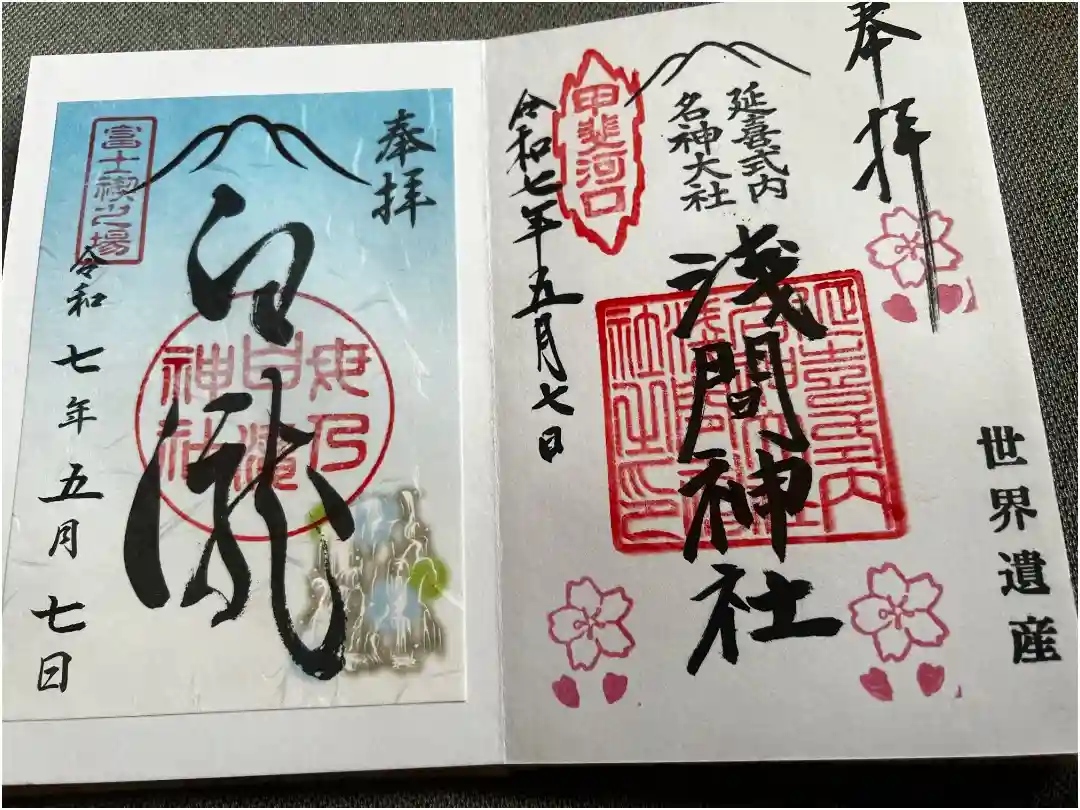 奉拝
世界遺産
延喜式内
名神大社
浅間神社
延喜式内
社之印
甲斐河口
令和七年五月七日
奉拝
白瀧
母乃
白滝
神社
富士禊之場
令和七年五月七日